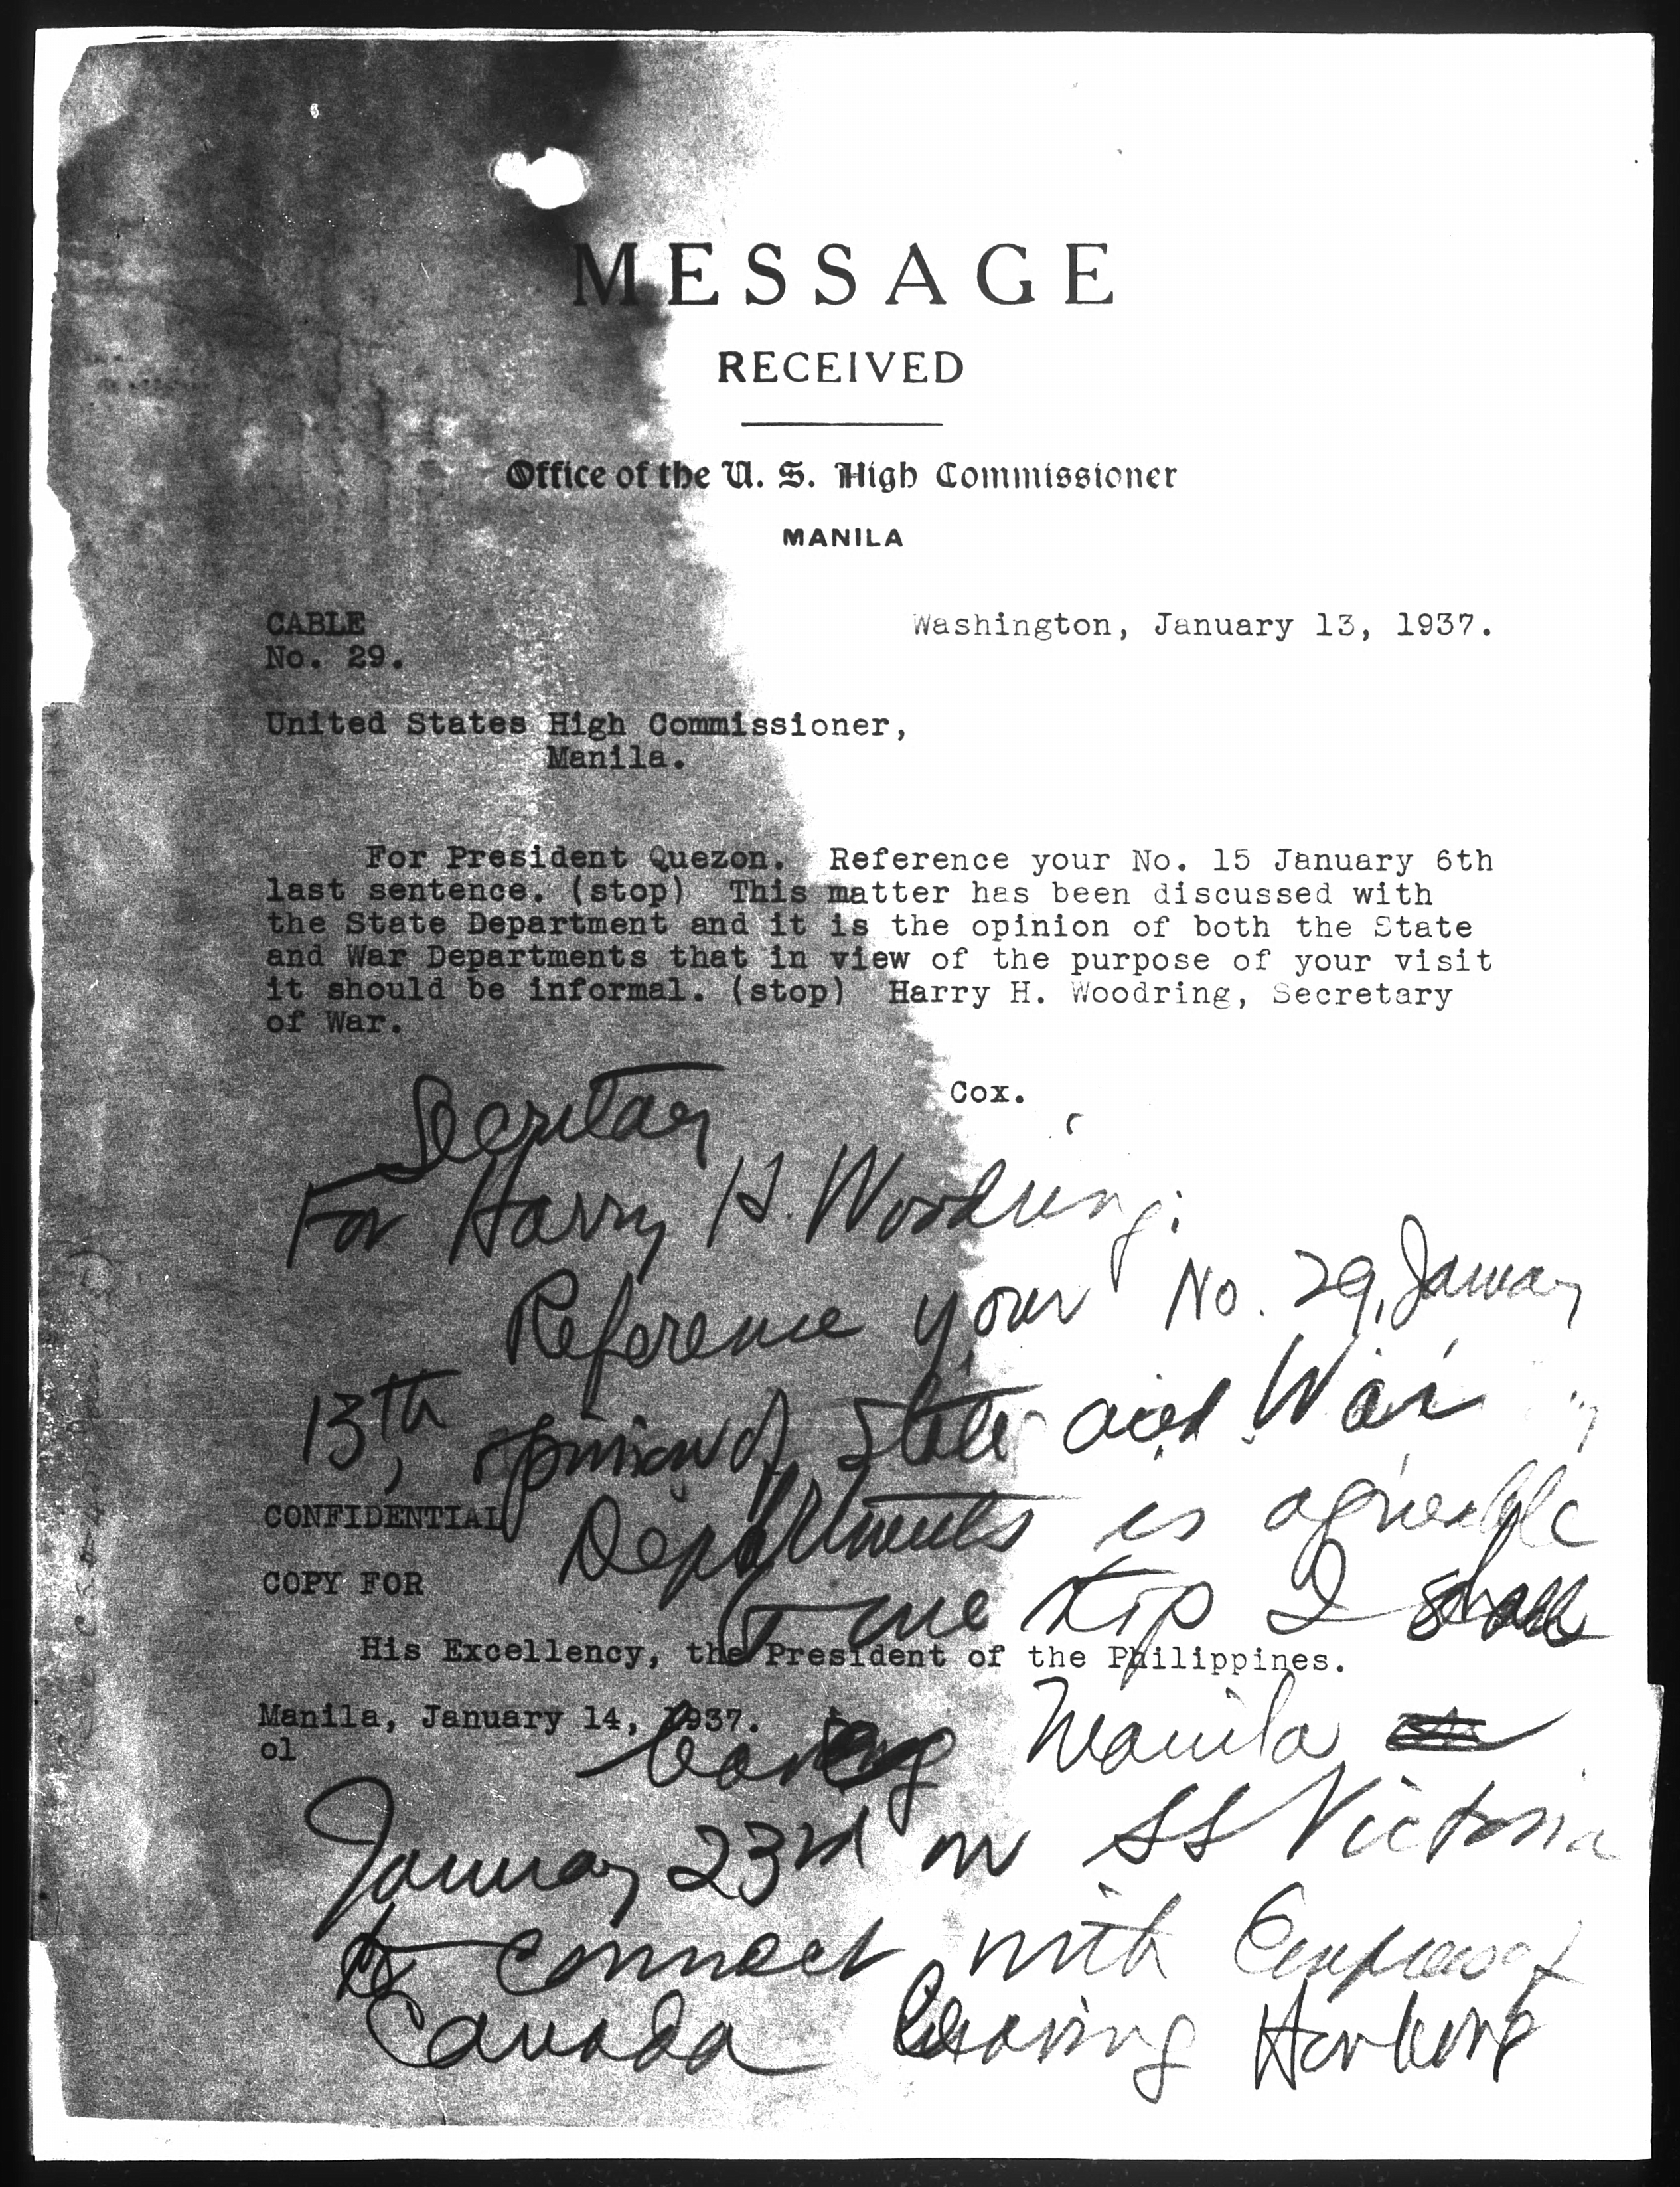 MESSAGE
RECEIVED
Office of the U. S. High Commissioner
MANILA
CABLE
No. 29.
Washington, January 13, 1937.
United States High Commissioner,
Manila.
For President Quezon. Reference your No. 15 January 6th
last sentence. (stop) This matter has been discussed with
the State Department and it is the opinion of both the State
and War Departments that in view of the purpose of your visit
it should be informal. (stop) Harry H. Woodring, Secretary
of War.
Cox.
Secretary
For Harry H. Woodring:
Reference your No. 29, January
13th, opinion of State and War
Departments is agreeable
to me stop I shall
leaving Manila
January 23rd on SS Victoria
to connect with Empress of
Canada leaving
CONFIDENTIAL
COPY FOR
His Excellency, the President of the Philippines.
Manila, January 14, 1937.
ol